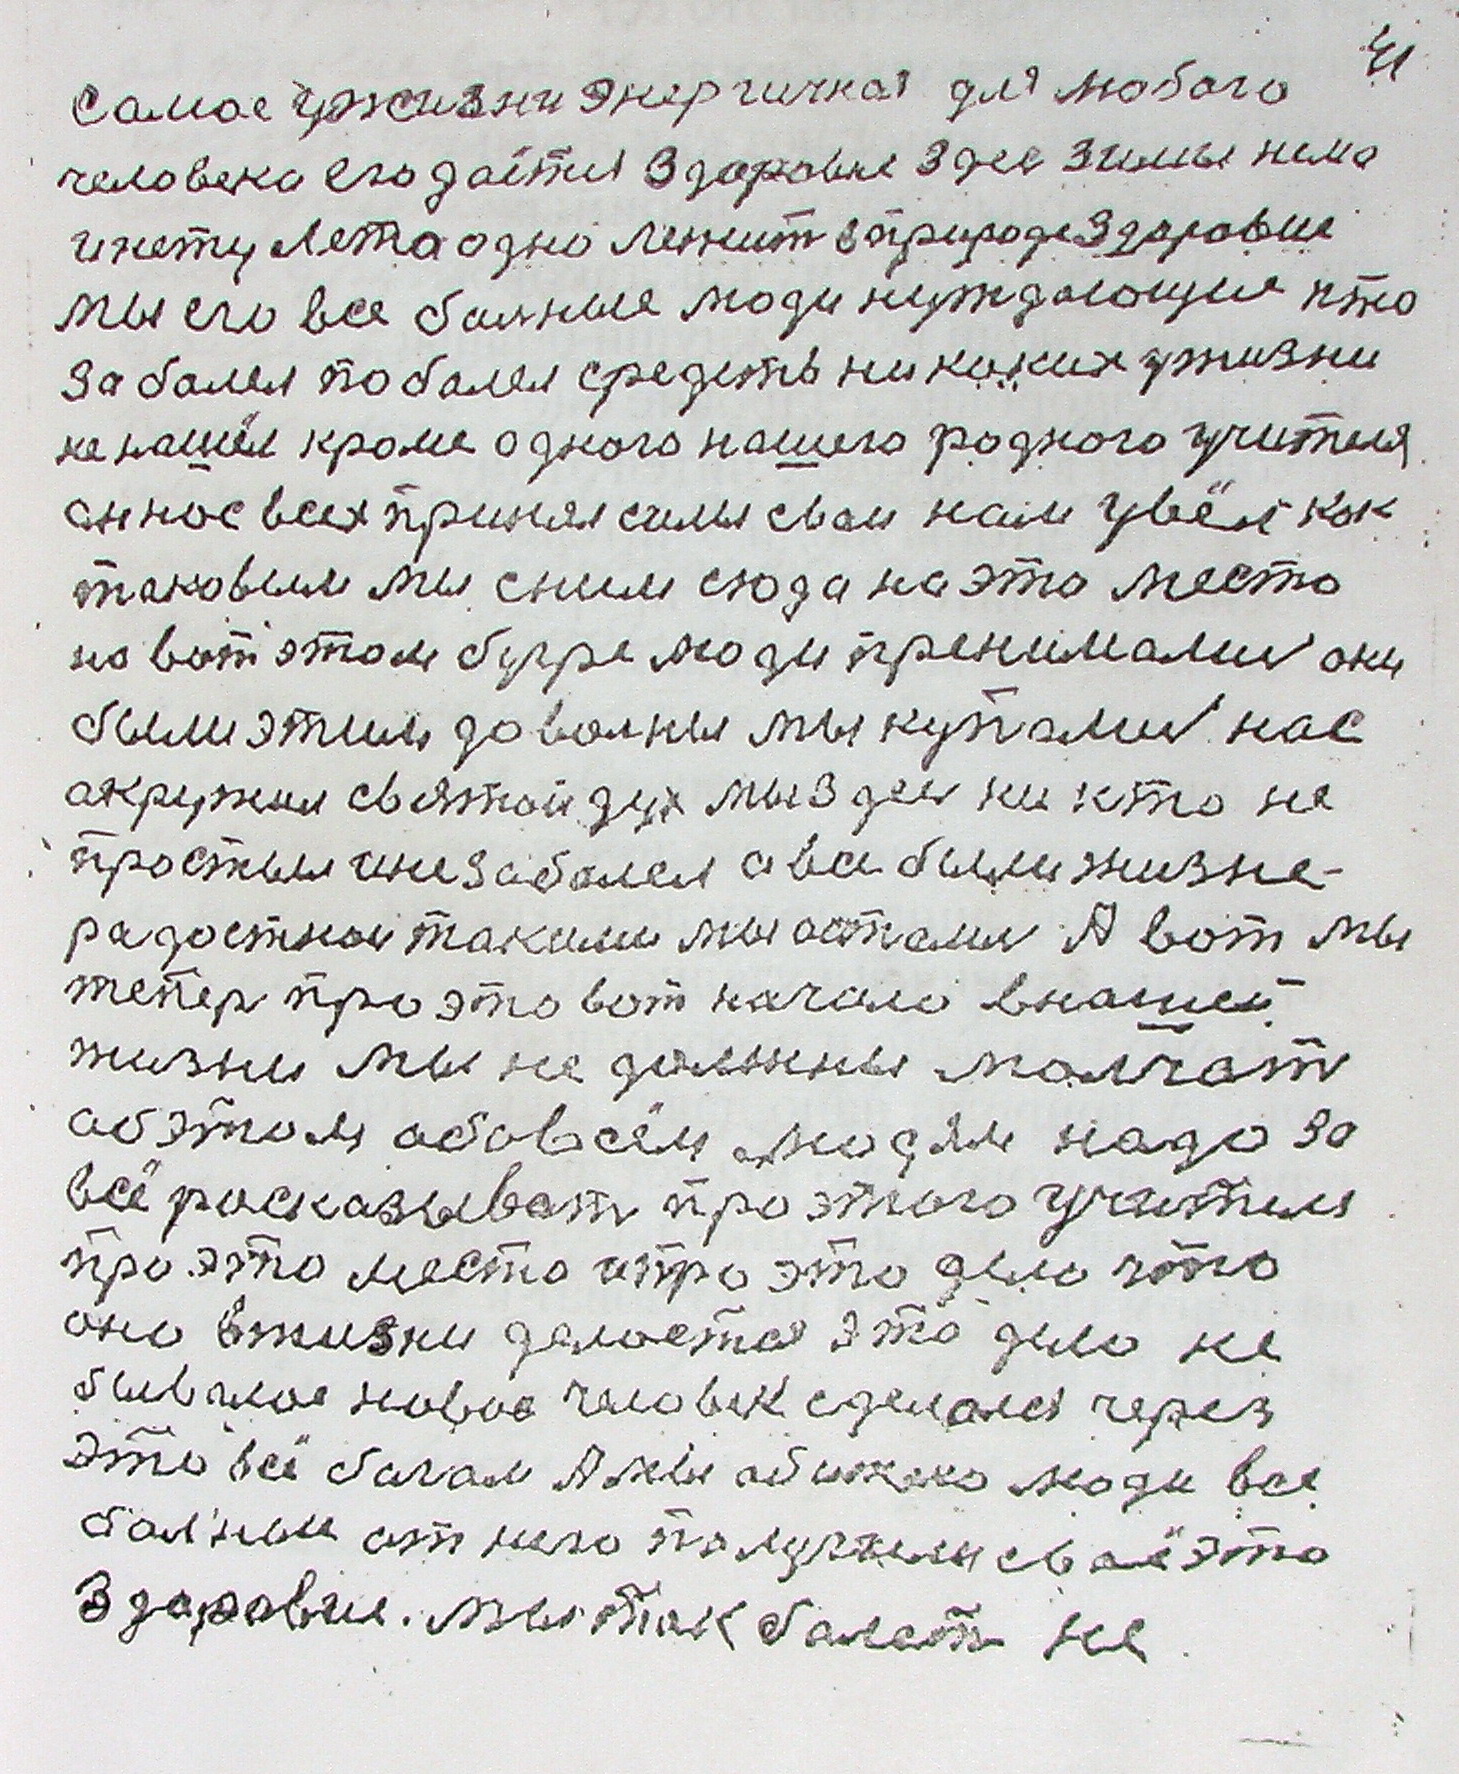 41
самое ужизни энергичная для любого
человека его даётся Здоровие Здес зимы нема
инету Лета одно лежит вприроде Здоровие
мы его все болные люди нуждающие кто
заболел поболел средств никаких ужизни
не нашёл кроме одного нашего родного учителя
он нас всех принял силы свои нам увёл как
таковыи мы сним сюда на это место
на вот этом бугре люди пренимали они
были этим доволны мы купали нас
акружил святой дух мы здес ни кто не
простыл ине заболел а все были жизне-
радостнои такими мы остали А вот мы
тепер про это вот начало внашей
жизни мы не должны молчат
об этом обо всём людям надо за
всё расказыват про этого учителя
про это место ипро это дело что
оно вжизни делается это дело не
бывалое новое человек сделался через
это всё богом А мы обижено люди все
болные от него получили своё это
Здоровие. мы так болет не